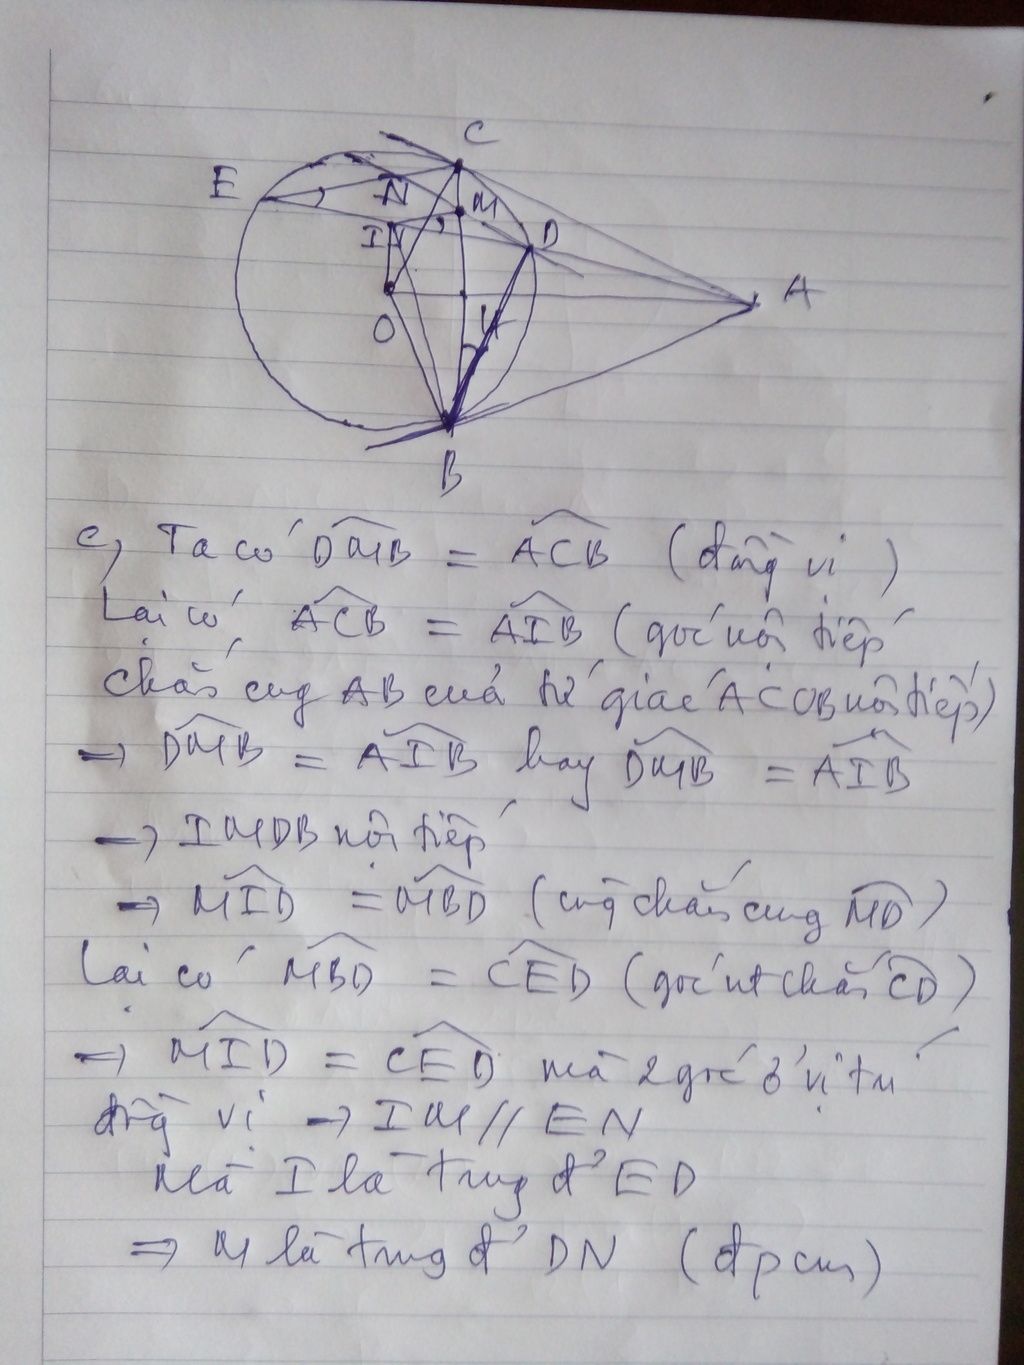 C
E
N
M
I
D
A
O
H
B
c, Ta có DMB = ACB (đồng vị)
Lại có ACB = AIB (góc nội tiếp
chắn cung AB của tứ giác ACOB nội tiếp)
→ DMB = AIB hay DMB = AIB
→ IMDB nội tiếp
→ MID = MBD (cùng chắn cung MD)
Lại có MBD = CED (góc nt chắn CD)
→ MID = CED mà 2 góc ở vị trí
đồng vị → IM // EN
Mà I là trung đ' ED
⇒ M là trung đ' DN (đpcm)